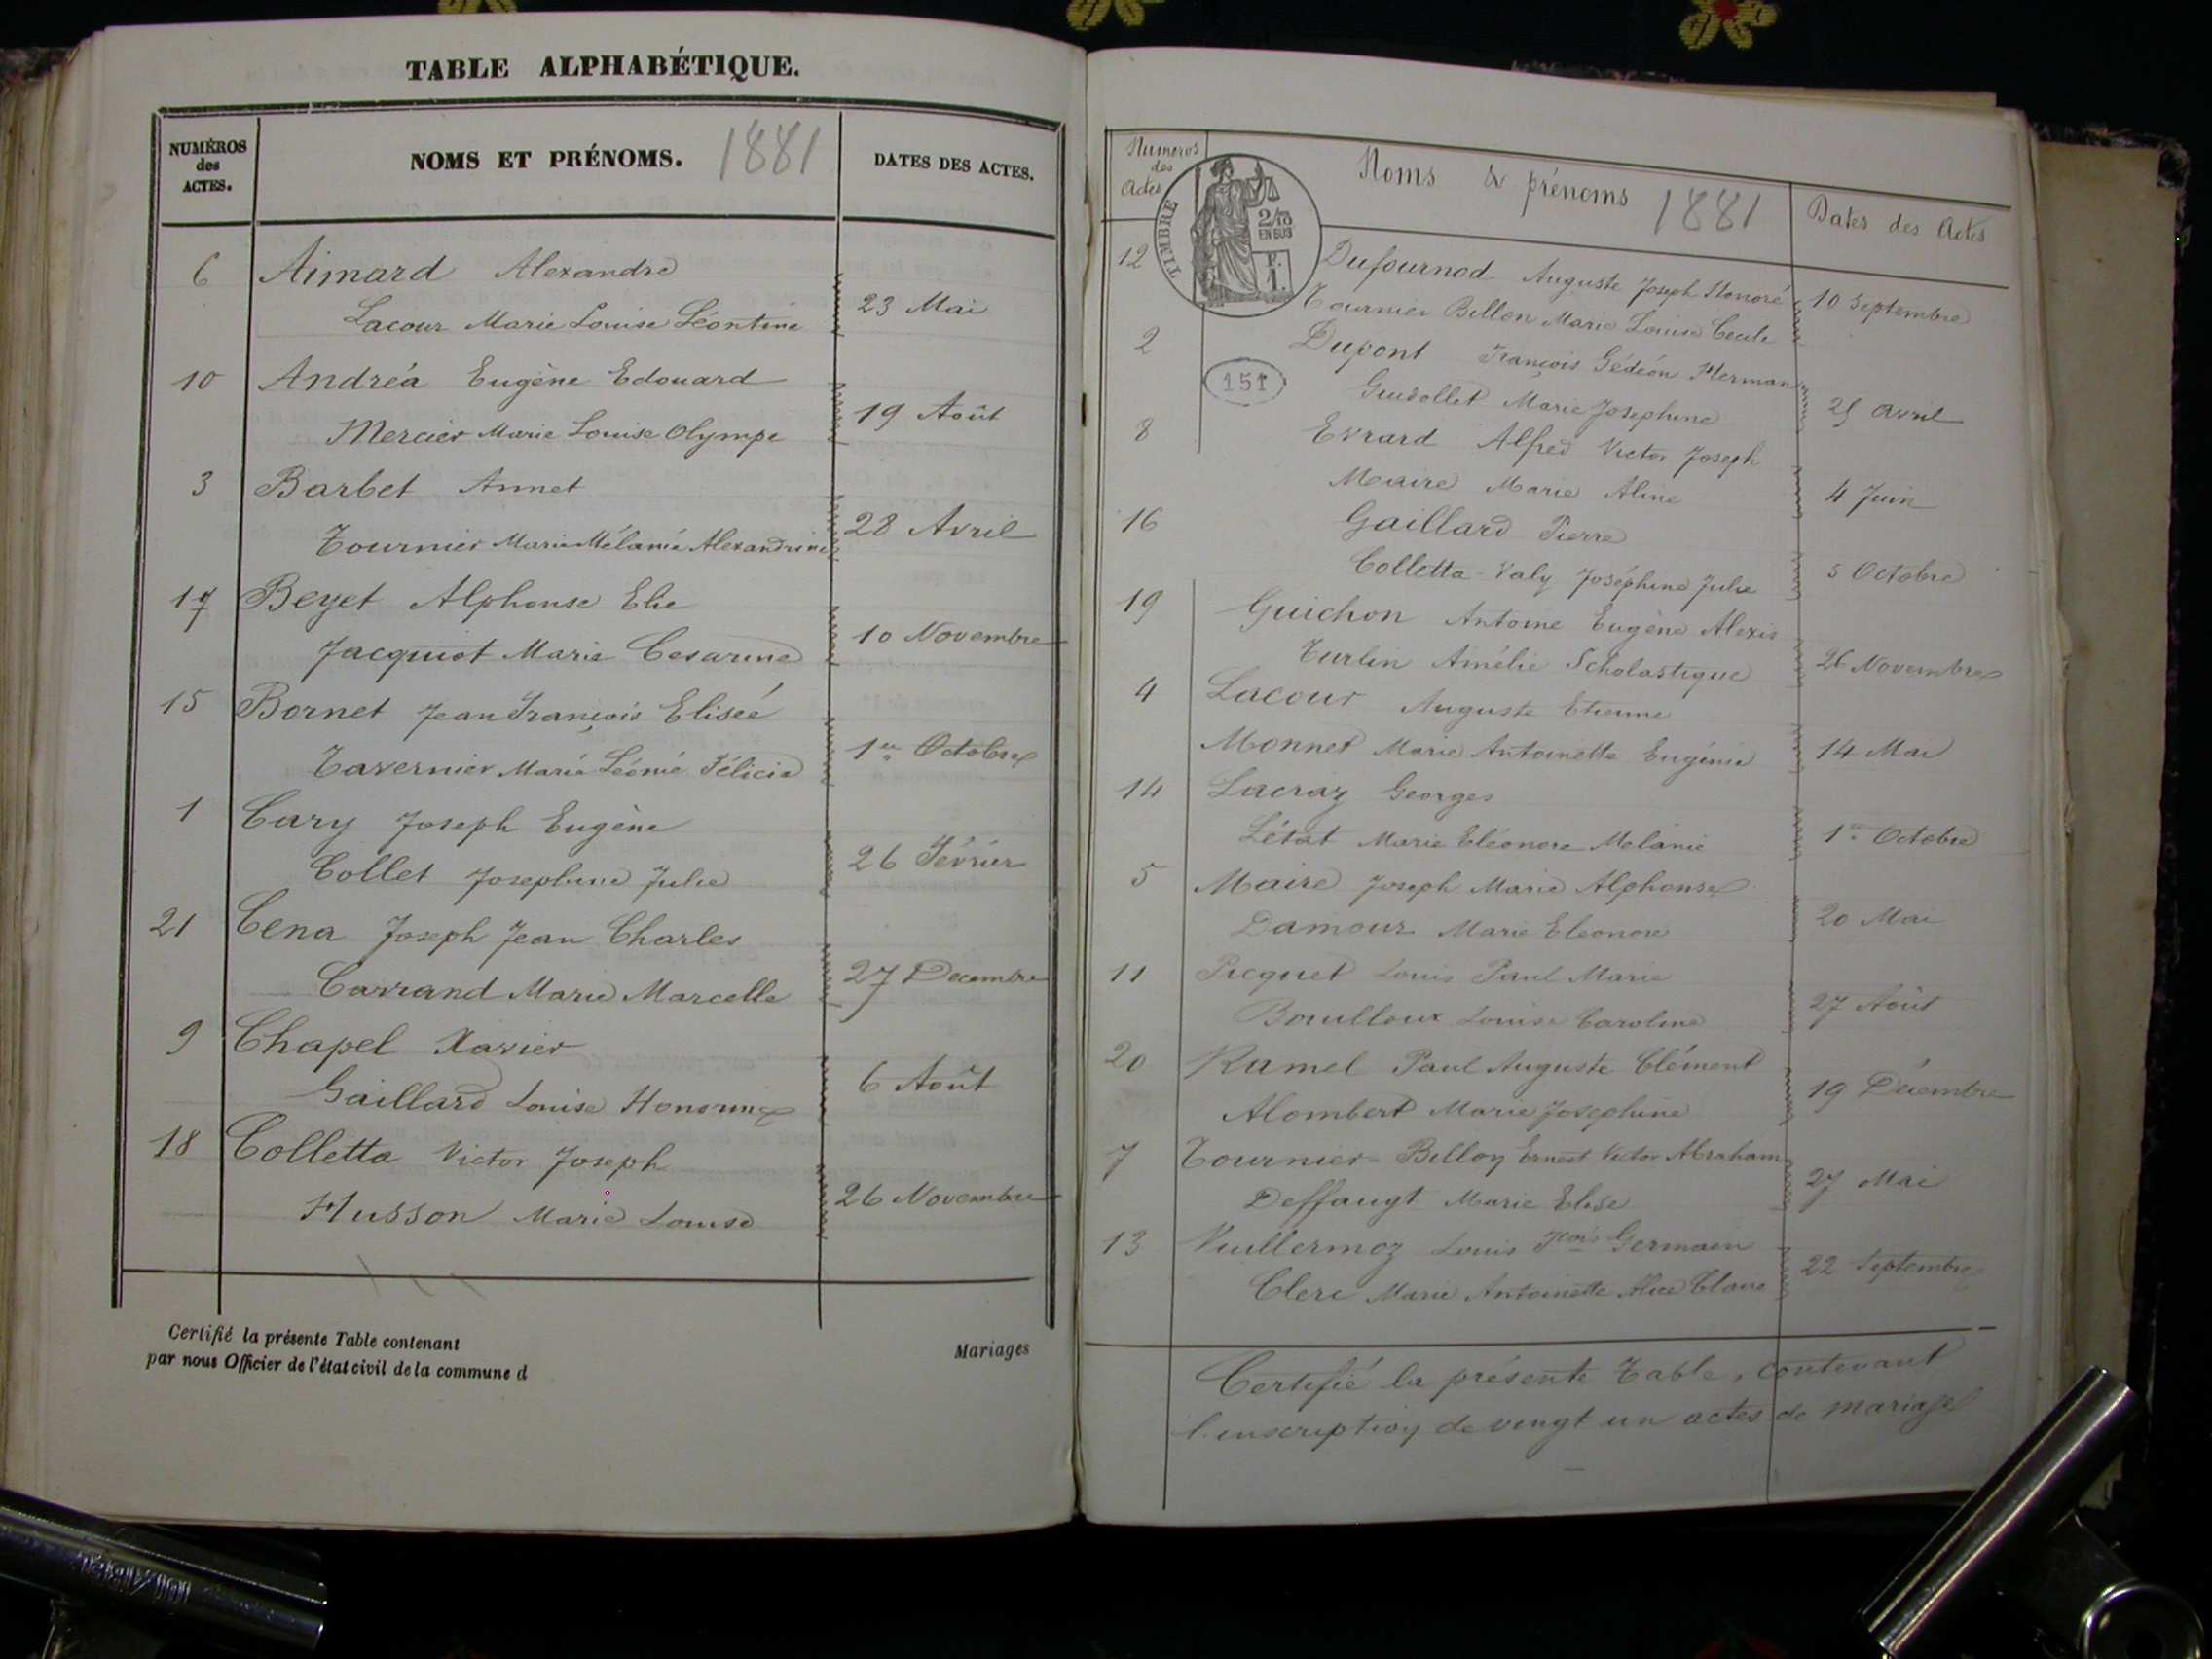 TABLE ALPHABÉTIQUE.
NUMÉROS
des
ACTES.
NOMS ET PRÉNOMS. 1881
DATES DES ACTES.
6 Aimard Alexandre
Lacour Marie Louise Léontine 23 Mai
10 Andréa Eugène Edouard
Mercier Marie Louise Olympe 19 Août
3 Barbet Annet
Tournier Marie Mélanie Alexandrine 28 Avril
17 Beyet Alphonse Elie
Jacquiot Marie Cesarine 10 Novembre
15 Bornet Jean François Eliseé
Tavernier Marie Léonie Félicie 1er Octobre
1 Cary Joseph Eugène
Collet Josephine Julie 26 Février
21 Cena Joseph Jean Charles
Carrand Marie Marcelle 27 Decembre
9 Chapel Xavier
Gaillard Louise Honorine 6 Août
18 Colletta Victor Joseph
Husson Marie Louise 26 Novembre
Certifié la présente Table contenant
par nous Officier de l'état civil de la commune d
Mariages
Numeros
des
Actes
Noms & prénoms 1881
Dates des Actes
TIMBRE
2/10
EN SUS
F.
1.
151
12 Dufournod Auguste Joseph Honoré 10 Septembre
Tournier Billon Marie Louise Cecile
2 Dupont François Gédéon Herman
Guidollet Marie Josephine 25 Avril
8 Evrard Alfred Victor Joseph
Meaire Marie Aline 4 Juin
16 Gaillard Pierre
Colletta-Valy Joséphine Julie 5 Octobre
19 Guichon Antoine Eugène Alexis
Turlin Amélie Scholastique 26 Novembre
4 Lacour Auguste Etienne
Monnet Marie Antoinette Eugénie 14 Mai
14 Lacraz Georges
Létat Marie Eléonore Melanie 1er Octobre
5 Maire Joseph Marie Alphonse
Damour Marie Eleonore 20 Mai
11 Picquet Louis Paul Marie
Bouilloux Louise Caroline 27 Août
20 Ramel Paul Auguste Clément
Alombert Marie Josephine 19 Décembre
7 Tournier-Billon Ernest Victor Abraham
Deffaugt Marie Elise 27 Mai
13 Vuillermoz Louis Fçois Germain
Clerc Marie Antoinette Alice Claire 22 Septembre
Certifié la présente Table, contenant
l'inscription de vingt un actes de mariage